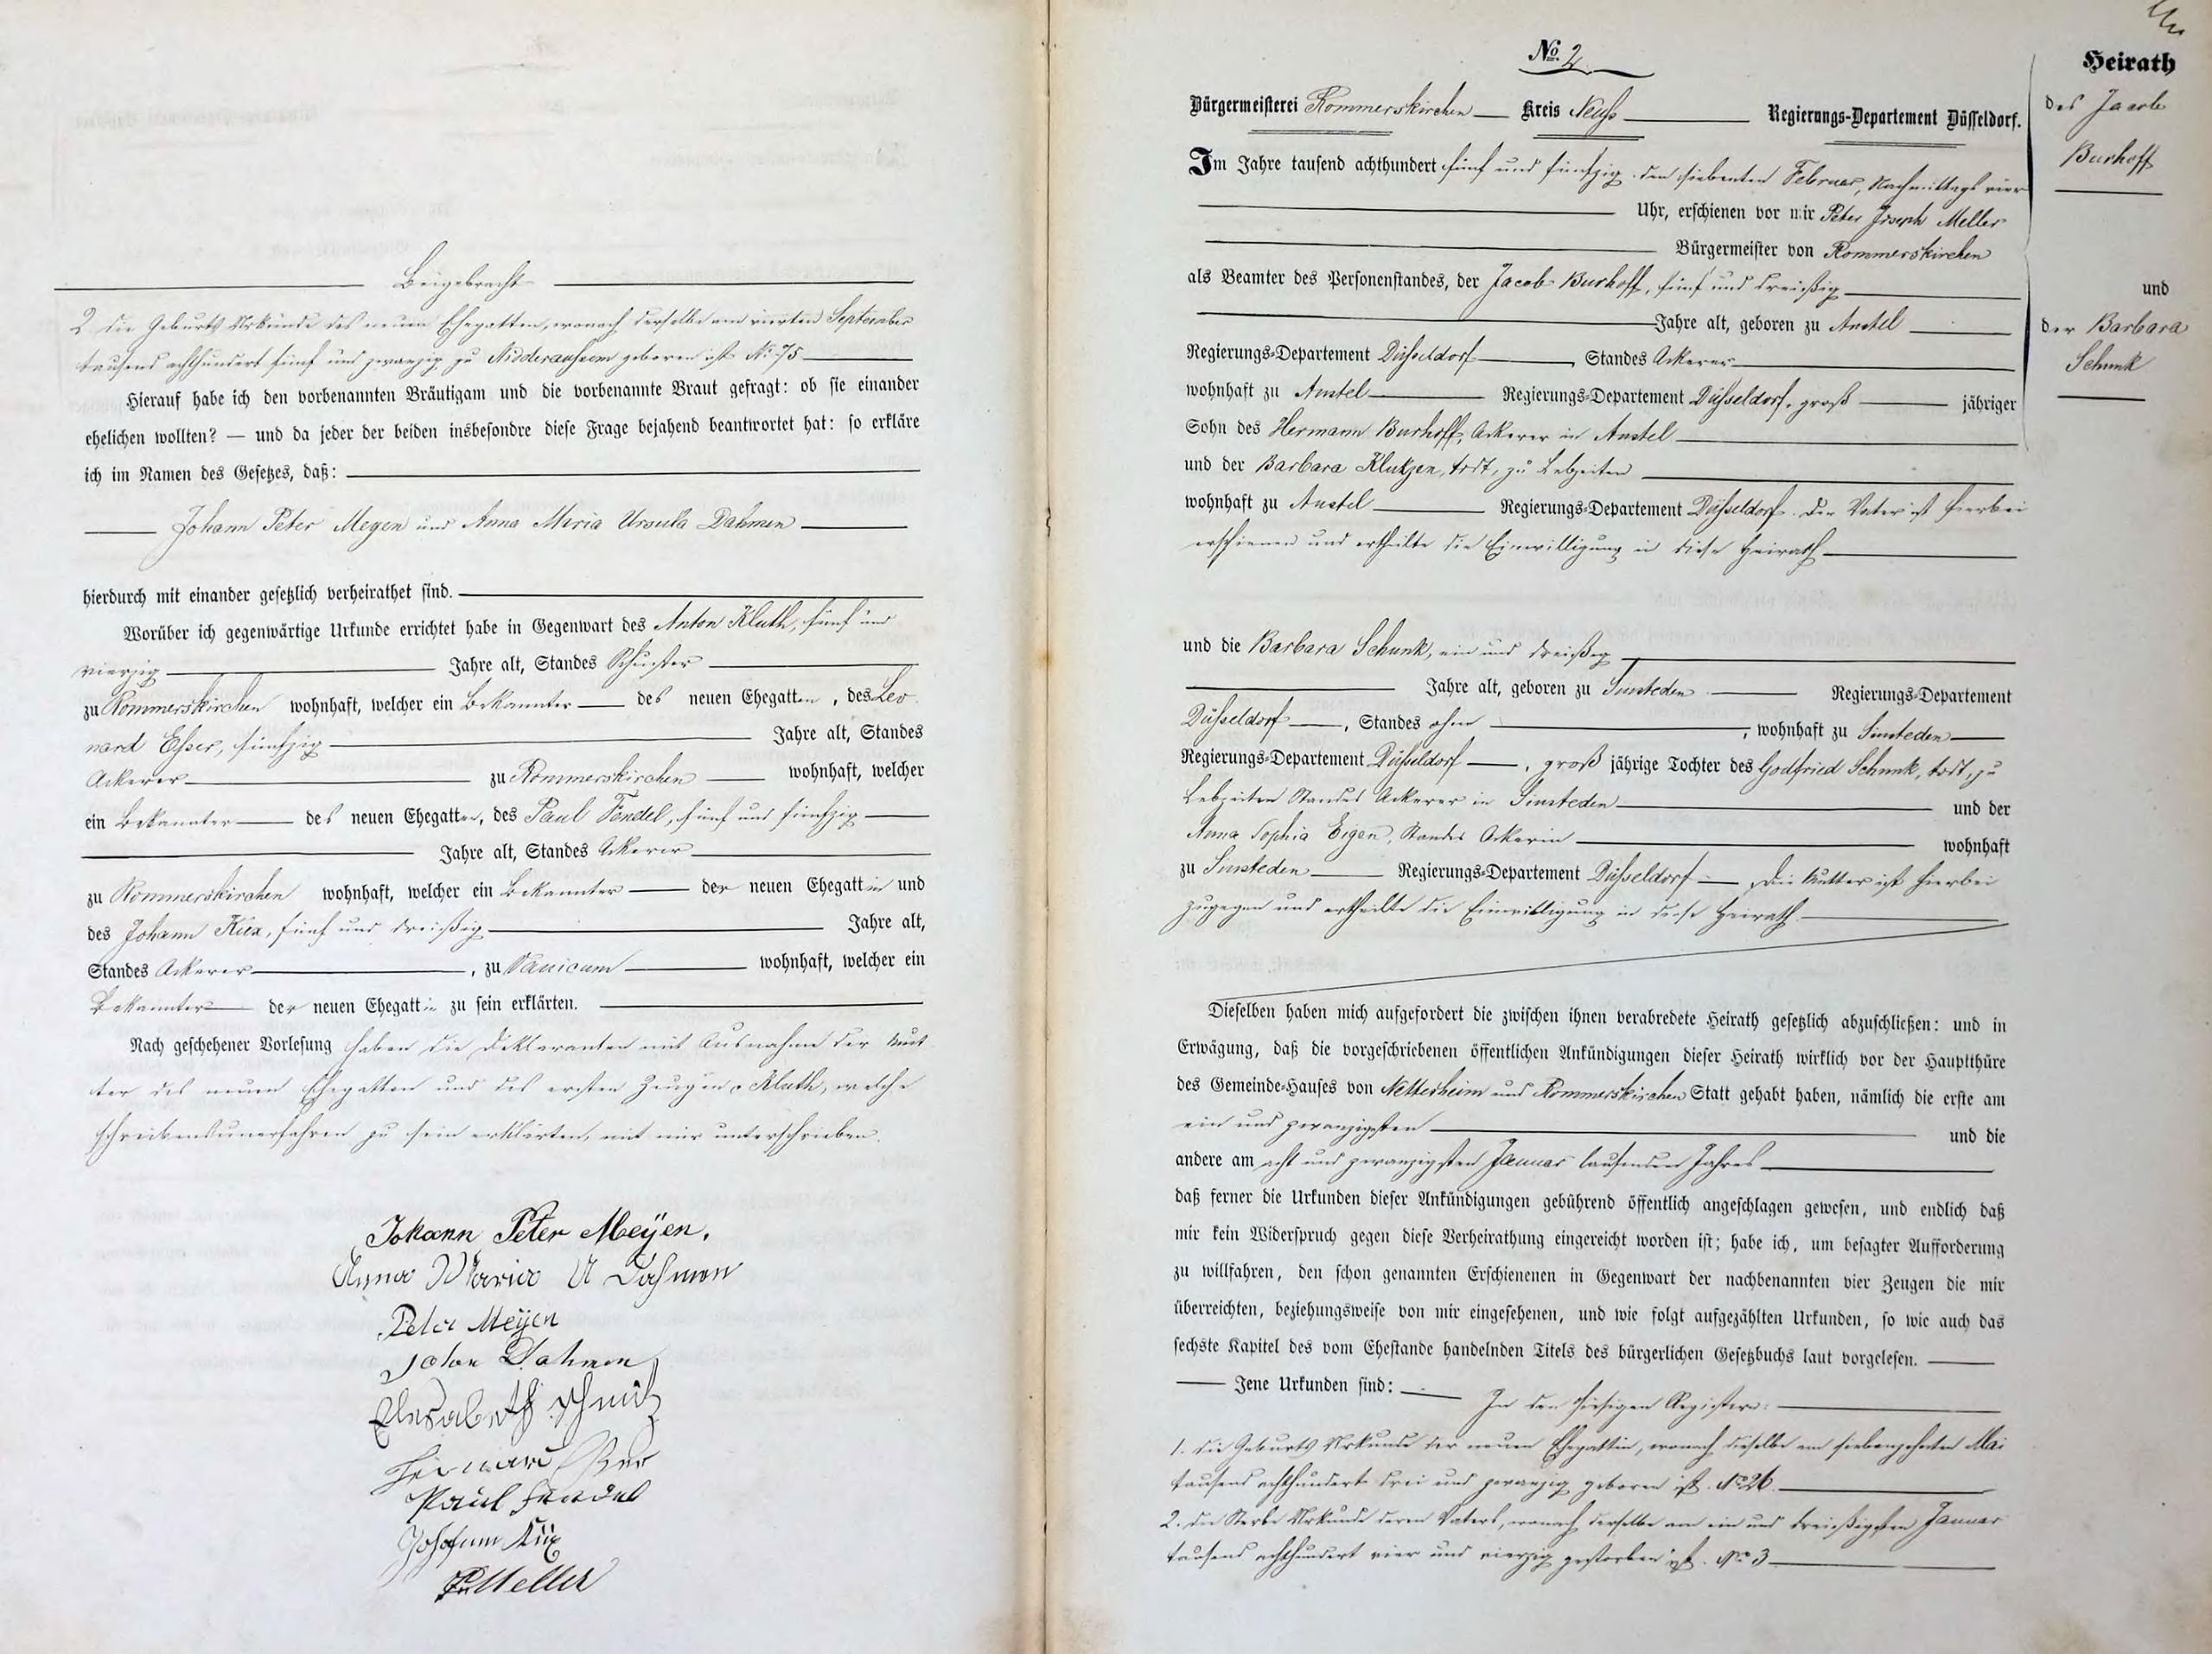 Beigebracht
2. die Geburts Urkunde des neuen Ehegatten, wonach derselbe am vierten September
tausend achthundert fünf und zwanzig zu Niederaußem geboren ist No 75
Hierauf habe ich den vorbenannten Bräutigam und die vorbenannte Braut gefragt: ob sie einander
ehelichen wollten? — und da jeder der beiden insbesondre diese Frage bejahend beantwortet hat: so erkläre
ich im Namen des Gesetzes, daß:
Johann Peter Meyen und Anna Maria Ursula Dahmen
hierdurch mit einander gesetzlich verheirathet sind.
Worüber ich gegenwärtige Urkunde errichtet habe in Gegenwart des Anton Kluth, fünf und
vierzig Jahre alt, Standes Schuster
zu Rommerskirchen wohnhaft, welcher ein Bekannter des neuen Ehegatten, des Leo
nard Esser, fünfzig Jahre alt, Standes
Ackerer zu Rommerskirchen wohnhaft, welcher
ein Bekannter des neuen Ehegatten, des Paul Fendel, fünf und fünfzig
Jahre alt, Standes Ackerer
zu Rommerskirchen wohnhaft, welcher ein Bekannter der neuen Ehegattin und
des Johann Küx, fünf und dreißig Jahre alt,
Standes Ackerer, zu Vanicum wohnhaft, welcher ein
Bekannter der neuen Ehegattin zu sein erklärten.
Nach geschehener Vorlesung haben die Deklaranten mit Ausnahme der Mut
ter des neuen Ehegatten und des ersten Zeugen Kluth, welche
schreibensunerfahren zu sein erklärten, mit mir unterschrieben.
Johann Peter Meÿen.
Anna Maria U Dahmen
Peter Meÿen
Dahmen
Elisabeth Schmitz
Paul Fendel
Johann Küx
Meller
No 2
Bürgermeisterei Rommerskirchen Kreis Neuß Regierungs-Departement Düsseldorf.
Im Jahre tausend achthundert fünf und fünfzig den siebenten Februar, Nachmittags vier
Uhr, erschienen vor mir Peter Joseph Meller
Bürgermeister von Rommerskirchen
als Beamter des Personenstandes, der Jacob Burhoff, fünf und dreißig
Jahre alt, geboren zu Anstel
Regierungs-Departement Düsseldorf, Standes Ackerer
wohnhaft zu Anstel Regierungs-Departement Düsseldorf, groß jähriger
Sohn des Hermann Burhoff, Ackerer in Anstel
und der Barbara Klutzen, todt, zu Lebzeiten
wohnhaft zu Anstel Regierungs-Departement Düsseldorf. Der Vater ist hierbei
erschienen und ertheilte die Einwilligung in diese Heirath
und die Barbara Schunk, ein und dreißig
Jahre alt, geboren zu Sinsteden Regierungs-Departement
Düsseldorf, Standes ohne, wohnhaft zu Sinsteden
Regierungs-Departement Düsseldorf, groß jährige Tochter des Godfried Schunk, todt, zu
Lebzeiten Standes Ackerer in Sinsteden und der
Anna Sophia Eigen, Standes Ackerin wohnhaft
zu Sinsteden Regierungs-Departement Düsseldorf Die Mutter ist hierbei
zugegen und ertheilte die Einwilligung in diese Heirath.
Dieselben haben mich aufgefordert die zwischen ihnen verabredete Heirath gesetzlich abzuschließen: und in
Erwägung, daß die vorgeschriebenen öffentlichen Ankündigungen dieser Heirath wirklich vor der Hauptthüre
des Gemeinde-Hauses von Nettesheim und Rommerskirchen Statt gehabt haben, nämlich die erste am
ein und zwanzigsten und die
andere am acht und zwanzigsten Januar laufenden Jahres
daß ferner die Urkunden dieser Ankündigungen gebührend öffentlich angeschlagen gewesen, und endlich daß
mir kein Widerspruch gegen diese Verheirathung eingereicht worden ist; habe ich, um besagter Aufforderung
zu willfahren, den schon genannten Erschienenen in Gegenwart der nachbenannten vier Zeugen die mir
überreichten, beziehungsweise von mir eingesehenen, und wie folgt aufgezählten Urkunden, so wie auch das
sechste Kapitel des vom Ehestande handelnden Titels des bürgerlichen Gesetzbuchs laut vorgelesen.
Jene Urkunden sind: In den hiesigen Registern:
1. die Geburts Urkunde der neuen Ehegattin, wonach dieselbe am siebenzehnten Mai
tausend achthundert drei und zwanzig geboren ist. No 26
2. die Sterbe Urkunde deren Vaters, wonach derselbe am ein und dreißigsten Januar
tausend achthundert vier und vierzig gestorben ist. No 3
Heirath
des Jacob
Burhoff
und
der Barbara
Schunk